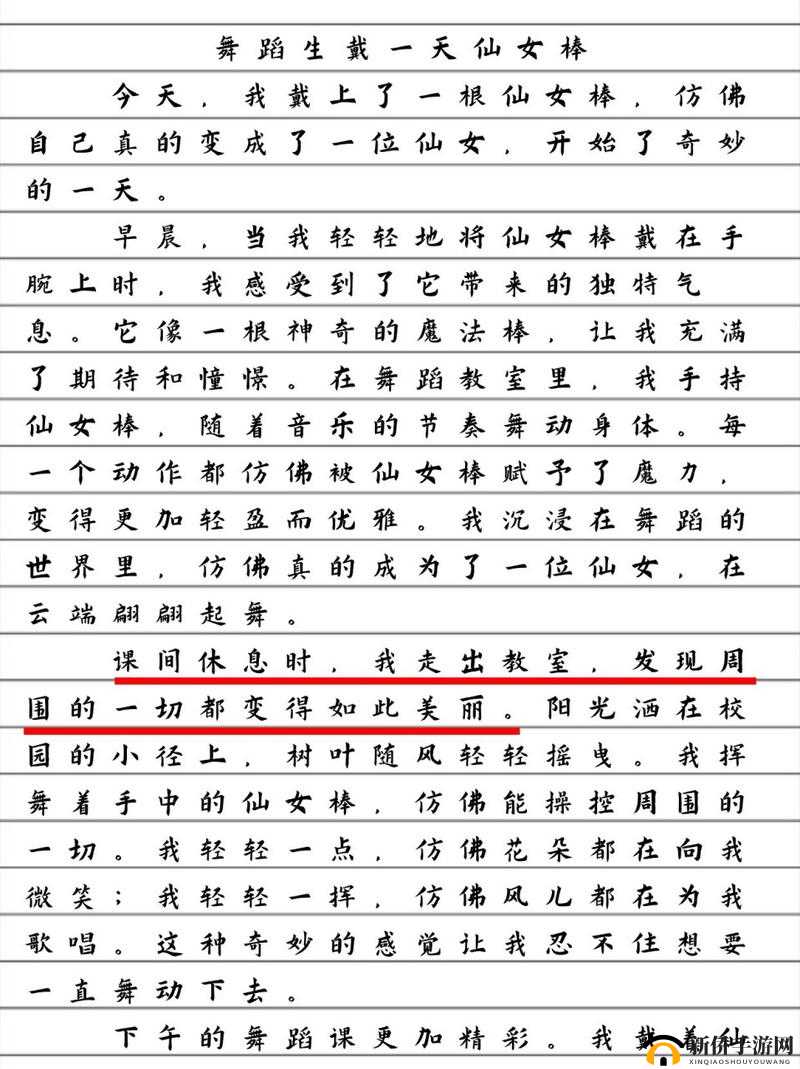 舞蹈生戴一天仙女棒
今天，我戴上了一根仙女棒，仿佛
自己真的变成了一位仙女，开始了奇妙
的一天。
早晨，当我轻轻地将仙女棒戴在手
腕上时，我感受到了它带来的独特气
息。它像一根神奇的魔法棒，让我充满
了期待和憧憬。在舞蹈教室里，我手持
仙女棒，随着音乐的节奏舞动身体。每
一个动作都仿佛被仙女棒赋予了魔力，
变得更加轻盈而优雅。我沉浸在舞蹈的
世界里，仿佛真的成为了一位仙女，在
云端翩翩起舞。
课间休息时，我走出教室，发现周
围的一切都变得如此美丽。阳光洒在校
园的小径上，树叶随风轻轻摇曳。我挥
舞着手中的仙女棒，仿佛能操控周围的
一切。我轻轻一点，仿佛花朵都在向我
微笑；我轻轻一挥，仿佛风儿都在为我
歌唱。这种奇妙的感觉让我忍不住想要
一直舞动下去。
下午的舞蹈课更加精彩。我戴着仙
新侨手游网
XINQIAOSHOUYOUWANG